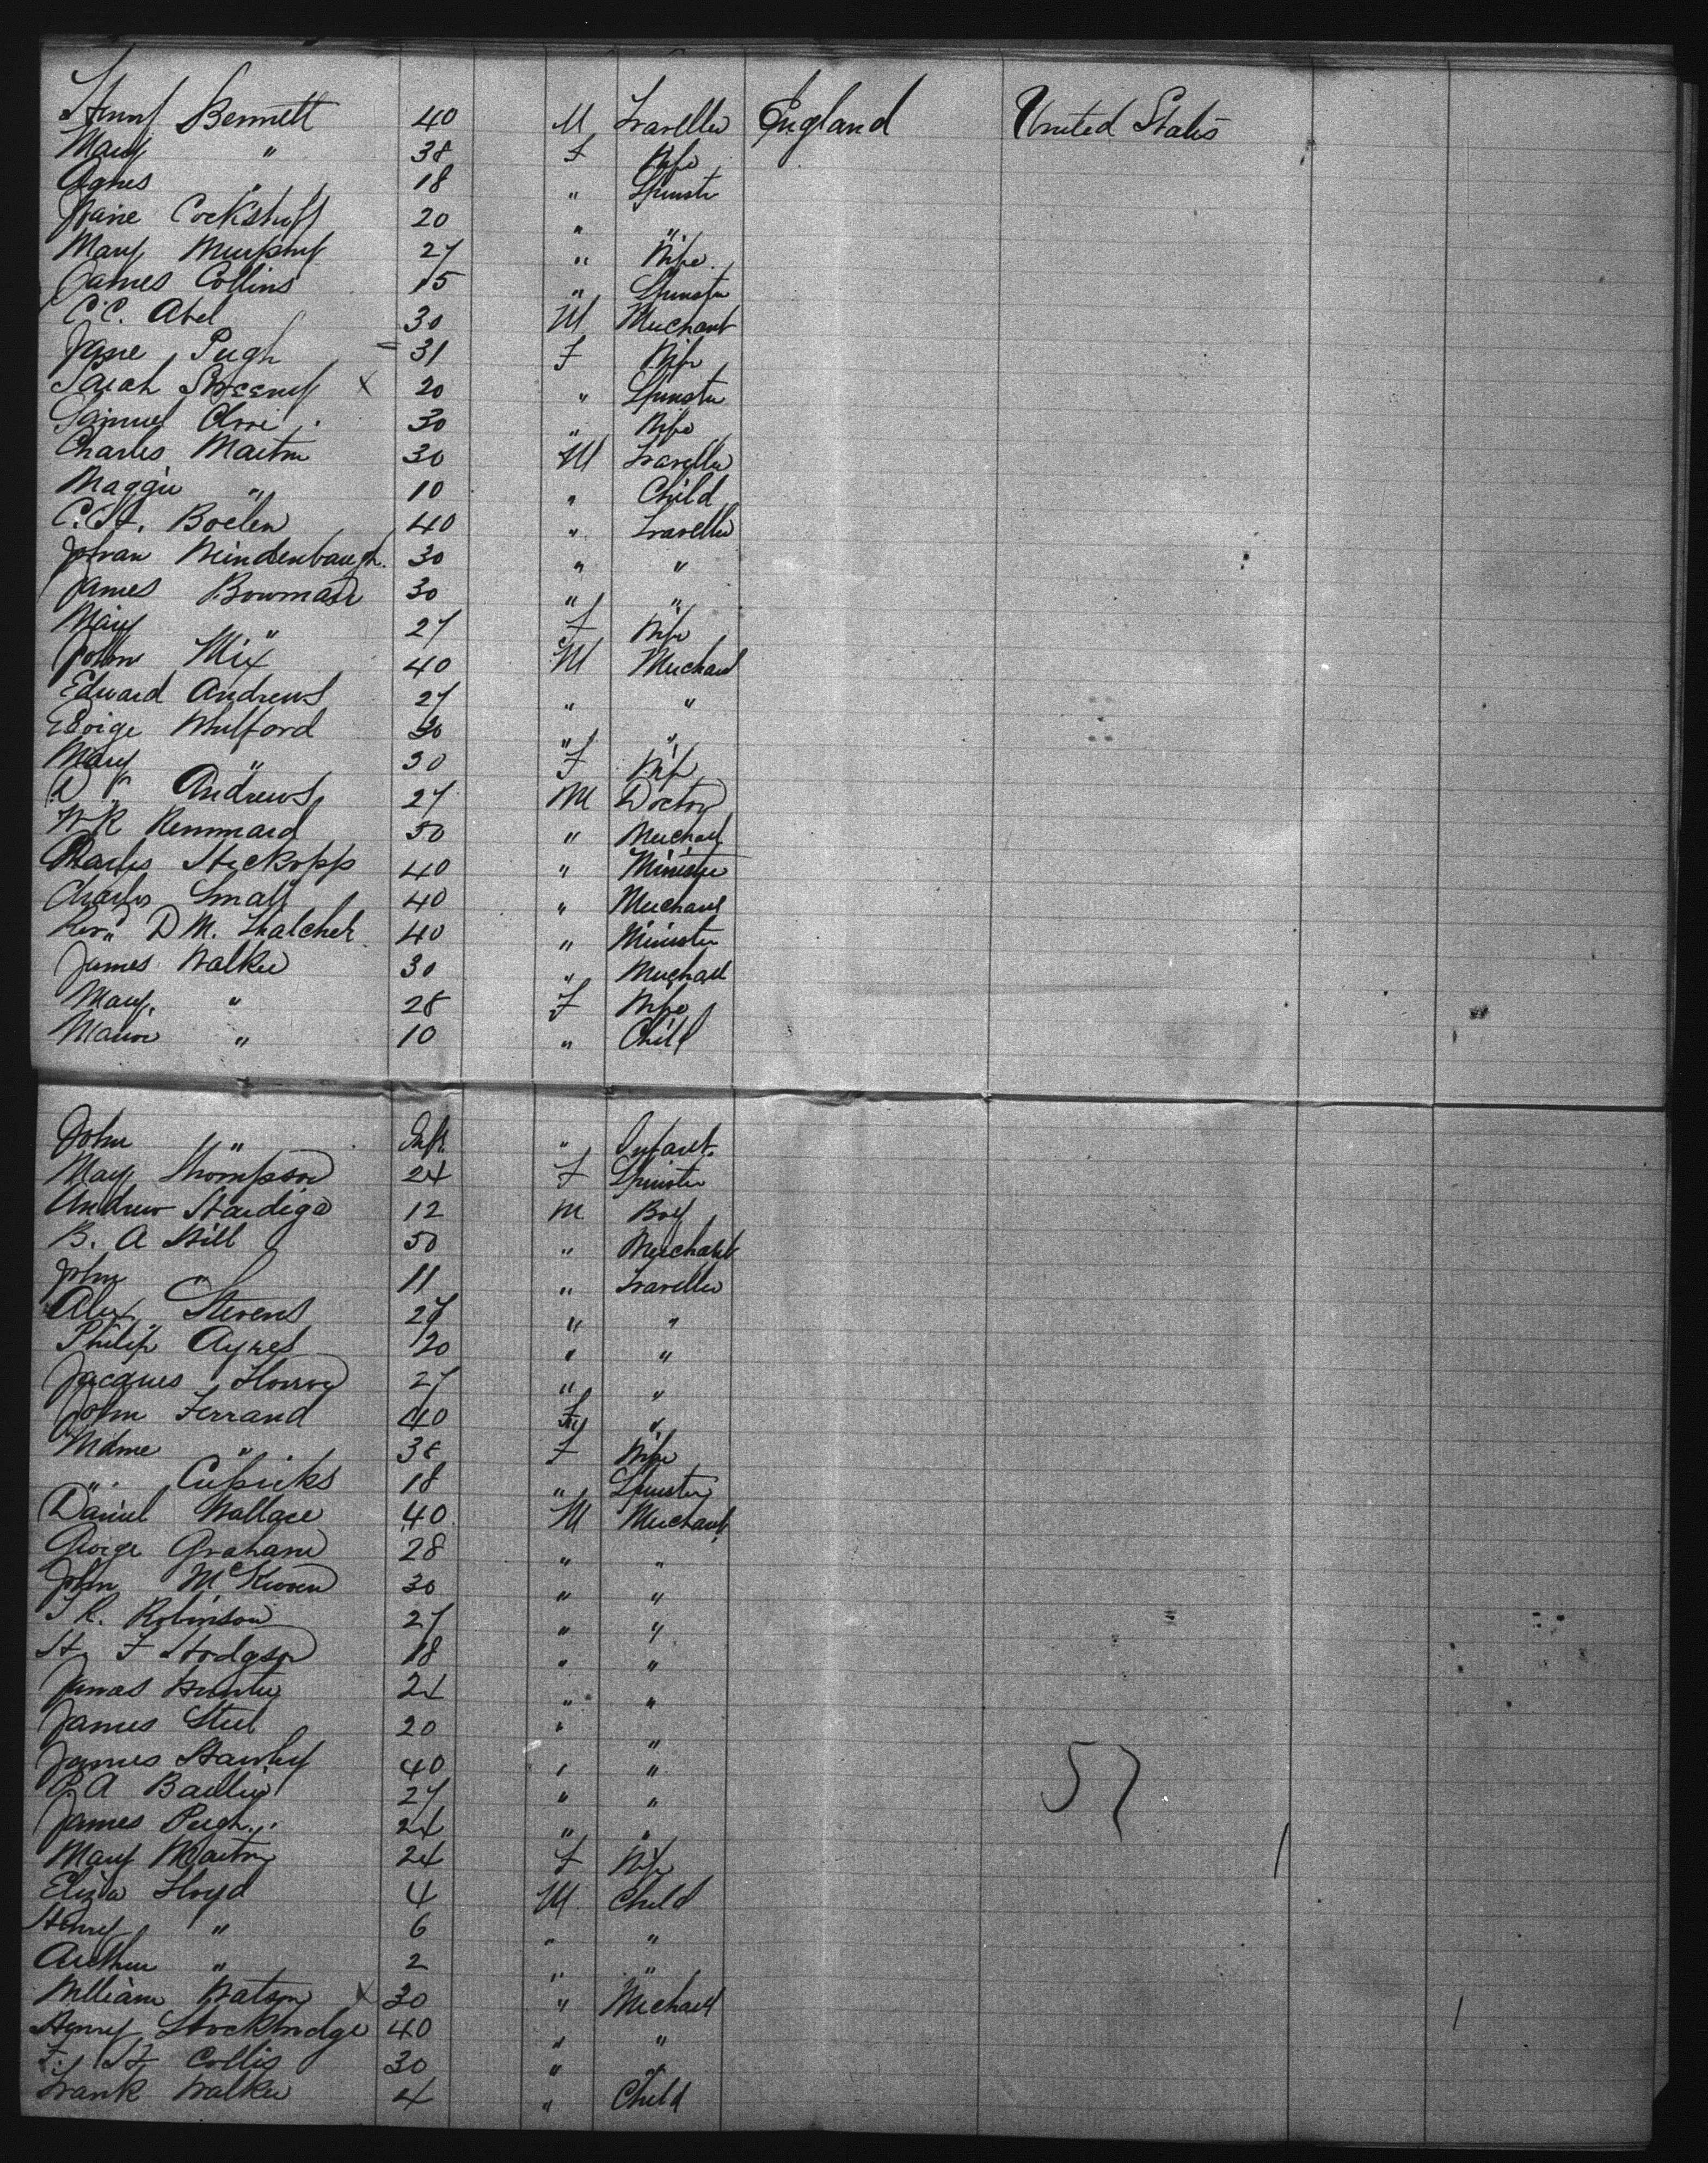 Henry Bennett 40 M Traveller England United States
Mary " 38 F Wife
Agnes " 18 " Spinster
Jane Cockshuff 20 " "
Mary Murphy 27 " Wife
James Collins 15 " Spinster
C.C. Abel 30 M Merchant
Jane Pugh 31 F Wife
Sarah Sweeny X 20 " Spinster
Samuel 30 " Wife
Charles Martin 30 M Traveller
Maggie " 10 " Child
C. H. Boelen 40 " Traveller
Johan Weindenbaugh. 30 " "
James Bowman 30 " "
Mary " 27 F Wife
John Mix 40 M Merchant
Edward Andrews 27 " "
George Wulford 30 " "
Mary " 30 F Wife
Dr. Andrews 27 M Doctor
W R Kennard 50 " Merchant
Charles Steckopp 40 " Minister
Charles Small 40 " Merchant
Rev. D M. Thatcher 40 " Minister
James Walker 30 " Merchant
Mary " 28 F Wife
" 10 " Child
John " Inft. " Infant.
May Thompson 24 F Spinster
Andrew 12 M Boy
B. A Hill 50 " Merchant
John " 11 " Traveller
Alex Stevens 27 " "
Philip Ayres 20 " "
Jacques 27 " "
John Ferrand 40 M "
Mdme " 38 F Wife
" 18 " Spinster
Daniel Wallace 40 M Merchant
George Graham 28 " "
John McKwen 30 " "
T R. Robinson 27 " "
H. F Hodgson 18 " "
James Hunter 24 " "
James Steel 20 " "
James Hawley 40 " "
A Bailey 27 " " 57
James Pugh 24 " "
Mary Martin 24 F Wife
Eliza Lloyd 4 M Child
Henry " 6 " "
Arthur " 2 " "
William Watson X 30 " Merchant
Henry Stockbridge 40 " "
F. H Collis 30 " "
Frank Walker 4 " Child